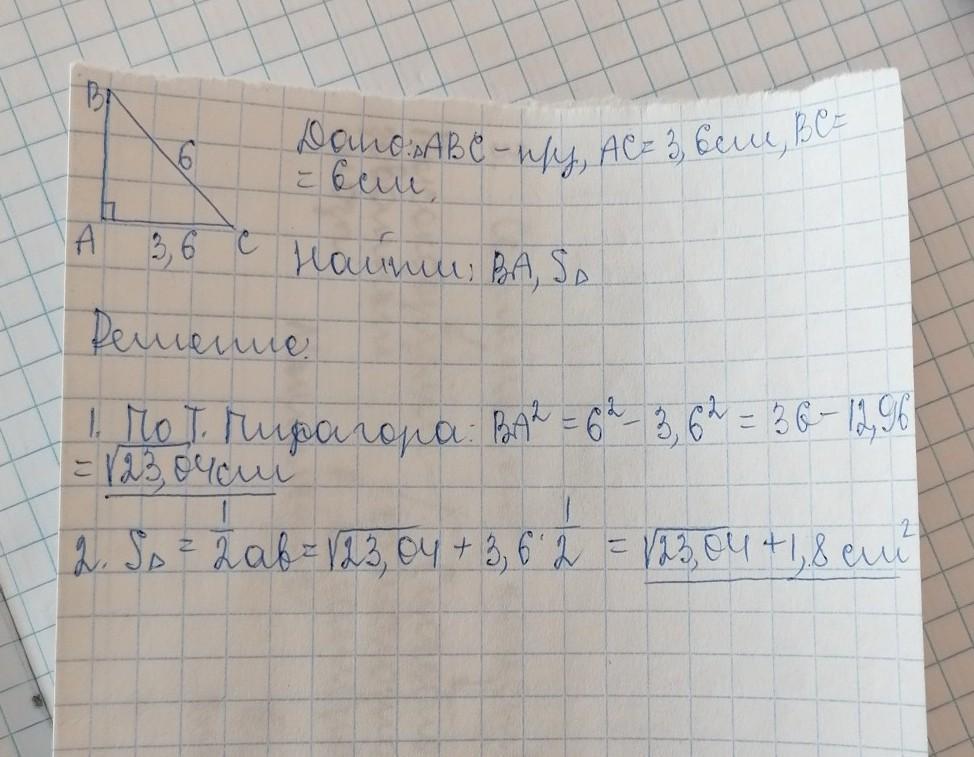 B
6
A
3,6
C
Дано: △ABC - п/у, AC = 3,6см, BC =
= 6см.
Найти: BA, S△
Решение:
1. По Т. Пифагора: BA² = 6² - 3,6² = 36 - 12,96
= √23,04см
2. S△ = 1/2 ab = √23,04 + 3,6 · 1/2 = √23,04 + 1,8 см²